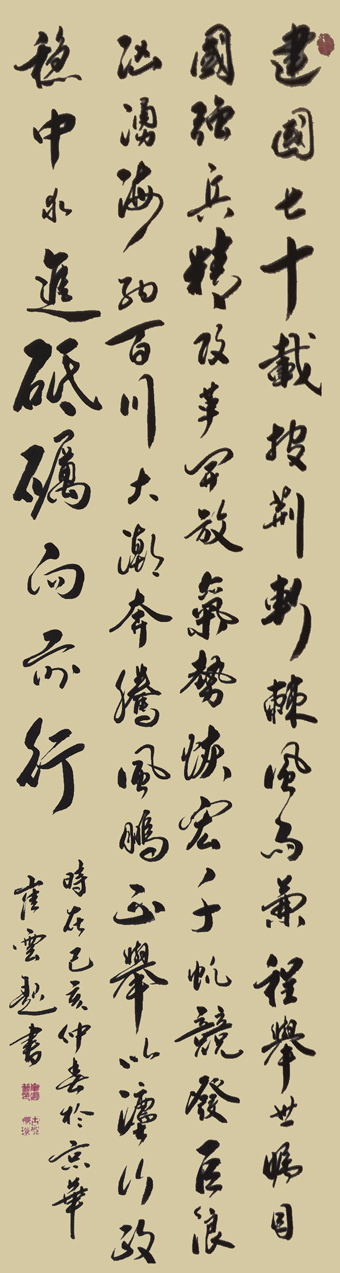 建國七十載披荊斬棘風雨兼程舉世矚目
國強兵精改革開放氣勢恢宏千帆競發巨浪
汹湧海納百川大潮奔騰風鵬正舉以灋行政
穩中求進砥礪向前行
時在己亥仲春於京華
崔雲書